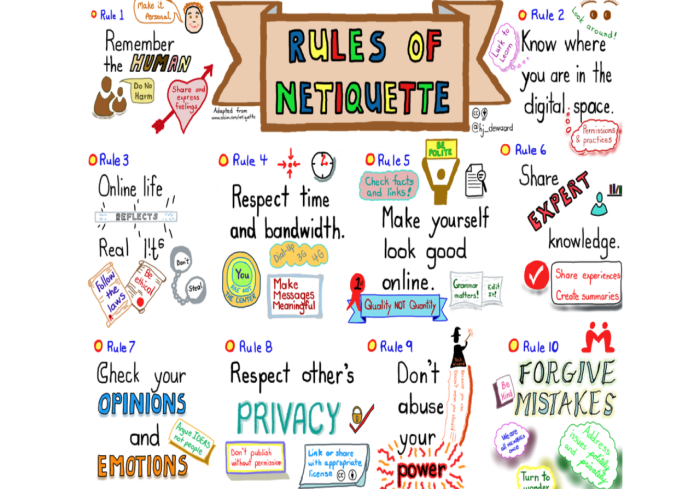 RULES OF
NETIQUETTE
Adapted from
@hj_dewaard
Rule 1
Make it
Personal!
Remember
the HUMAN
Do No
Harm
Share and
express
feelings
Rule 2
Look around!
Lurk to
Learn
Know where
you are in the
digital space.
Permissions
& practices
Rule 3
Online life
REFLECTS
Real life
Follow
the
laws
Be
ethical
Don't
Steal
Rule 4
Respect time
and bandwidth.
Dial-up
3G 4G
You
ARE NOT
THE CENTER
Make
Messages
Meaningful
Rule 5
BE
POLITE
Check facts
and links!
Make yourself
look good
online.
Grammar
matters!
Edit
It!
Quality NOT Quantity
Rule 6
Share
EXPERT
knowledge.
Share experiences
Create summaries
Rule 7
Check your
OPINIONS
and
EMOTIONS
Argue IDEAS
not people
Rule 8
Respect other's
PRIVACY
Don't publish
without permission
Link or share
with appropriate
license
Rule 9
Don't
abuse
your
power
Rule 10
Be
Kind
FORGIVE
MISTAKES
We are
all newbies
once
Address
issues politely
and privately
Turn to
wonder